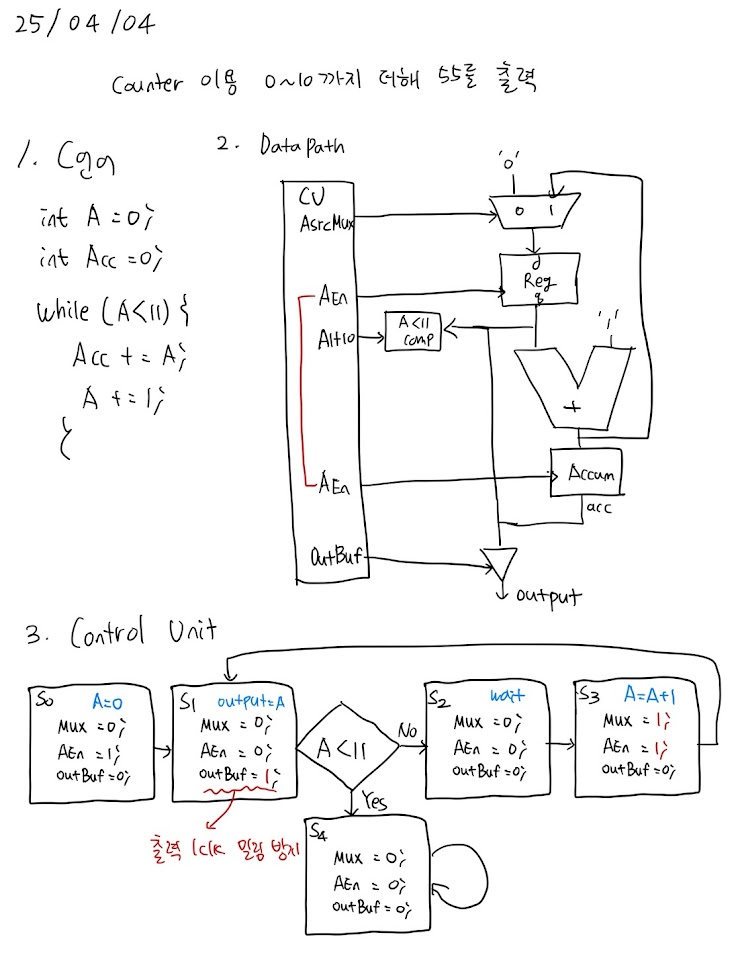 25/04/04
Counter 이용 0~10까지 더해 55를 출력
1. C언어
int A = 0;
int Acc = 0;
while (A<11) {
Acc += A;
A += 1;
}
2. Data path
CU
AsrcMux
AEn
Alt10
AEn
OutBuf
'0'
0 1
d
Reg
q
A<11
comp
'1'
+
Accum
acc
output
3. Control Unit
S0 A=0
Mux = 0;
AEn = 1;
outBuf = 0;
S1 output=A
Mux = 0;
AEn = 0;
outBuf = 1;
출력 1clk 밀림 방지
A<11
No
Yes
S2 wait
Mux = 0;
AEn = 0;
outBuf = 0;
S3 A=A+1
Mux = 1;
AEn = 1;
outBuf = 0;
S4
Mux = 0;
AEn = 0;
outBuf = 0;